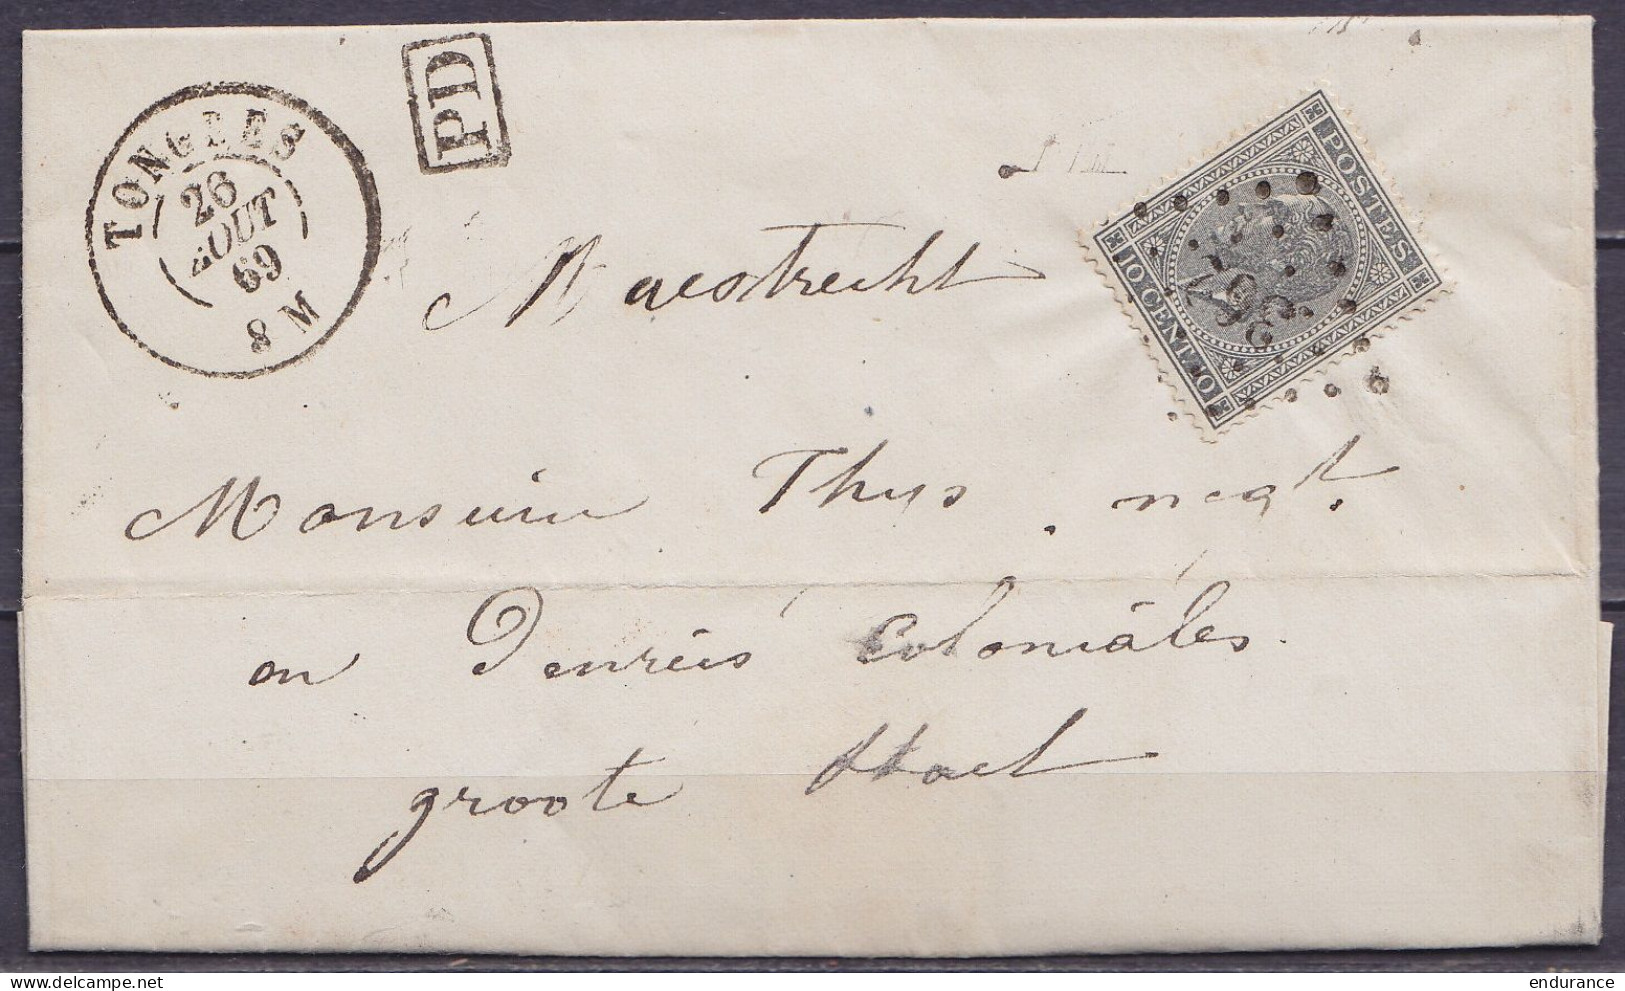 TONGRES
26
AOUT
69
8 M
PD
POSTES
10 CENT. 10
367
Maestrecht
Monsieur Thys negt.
en Denréis Coloniáles
groote Stael
endurance